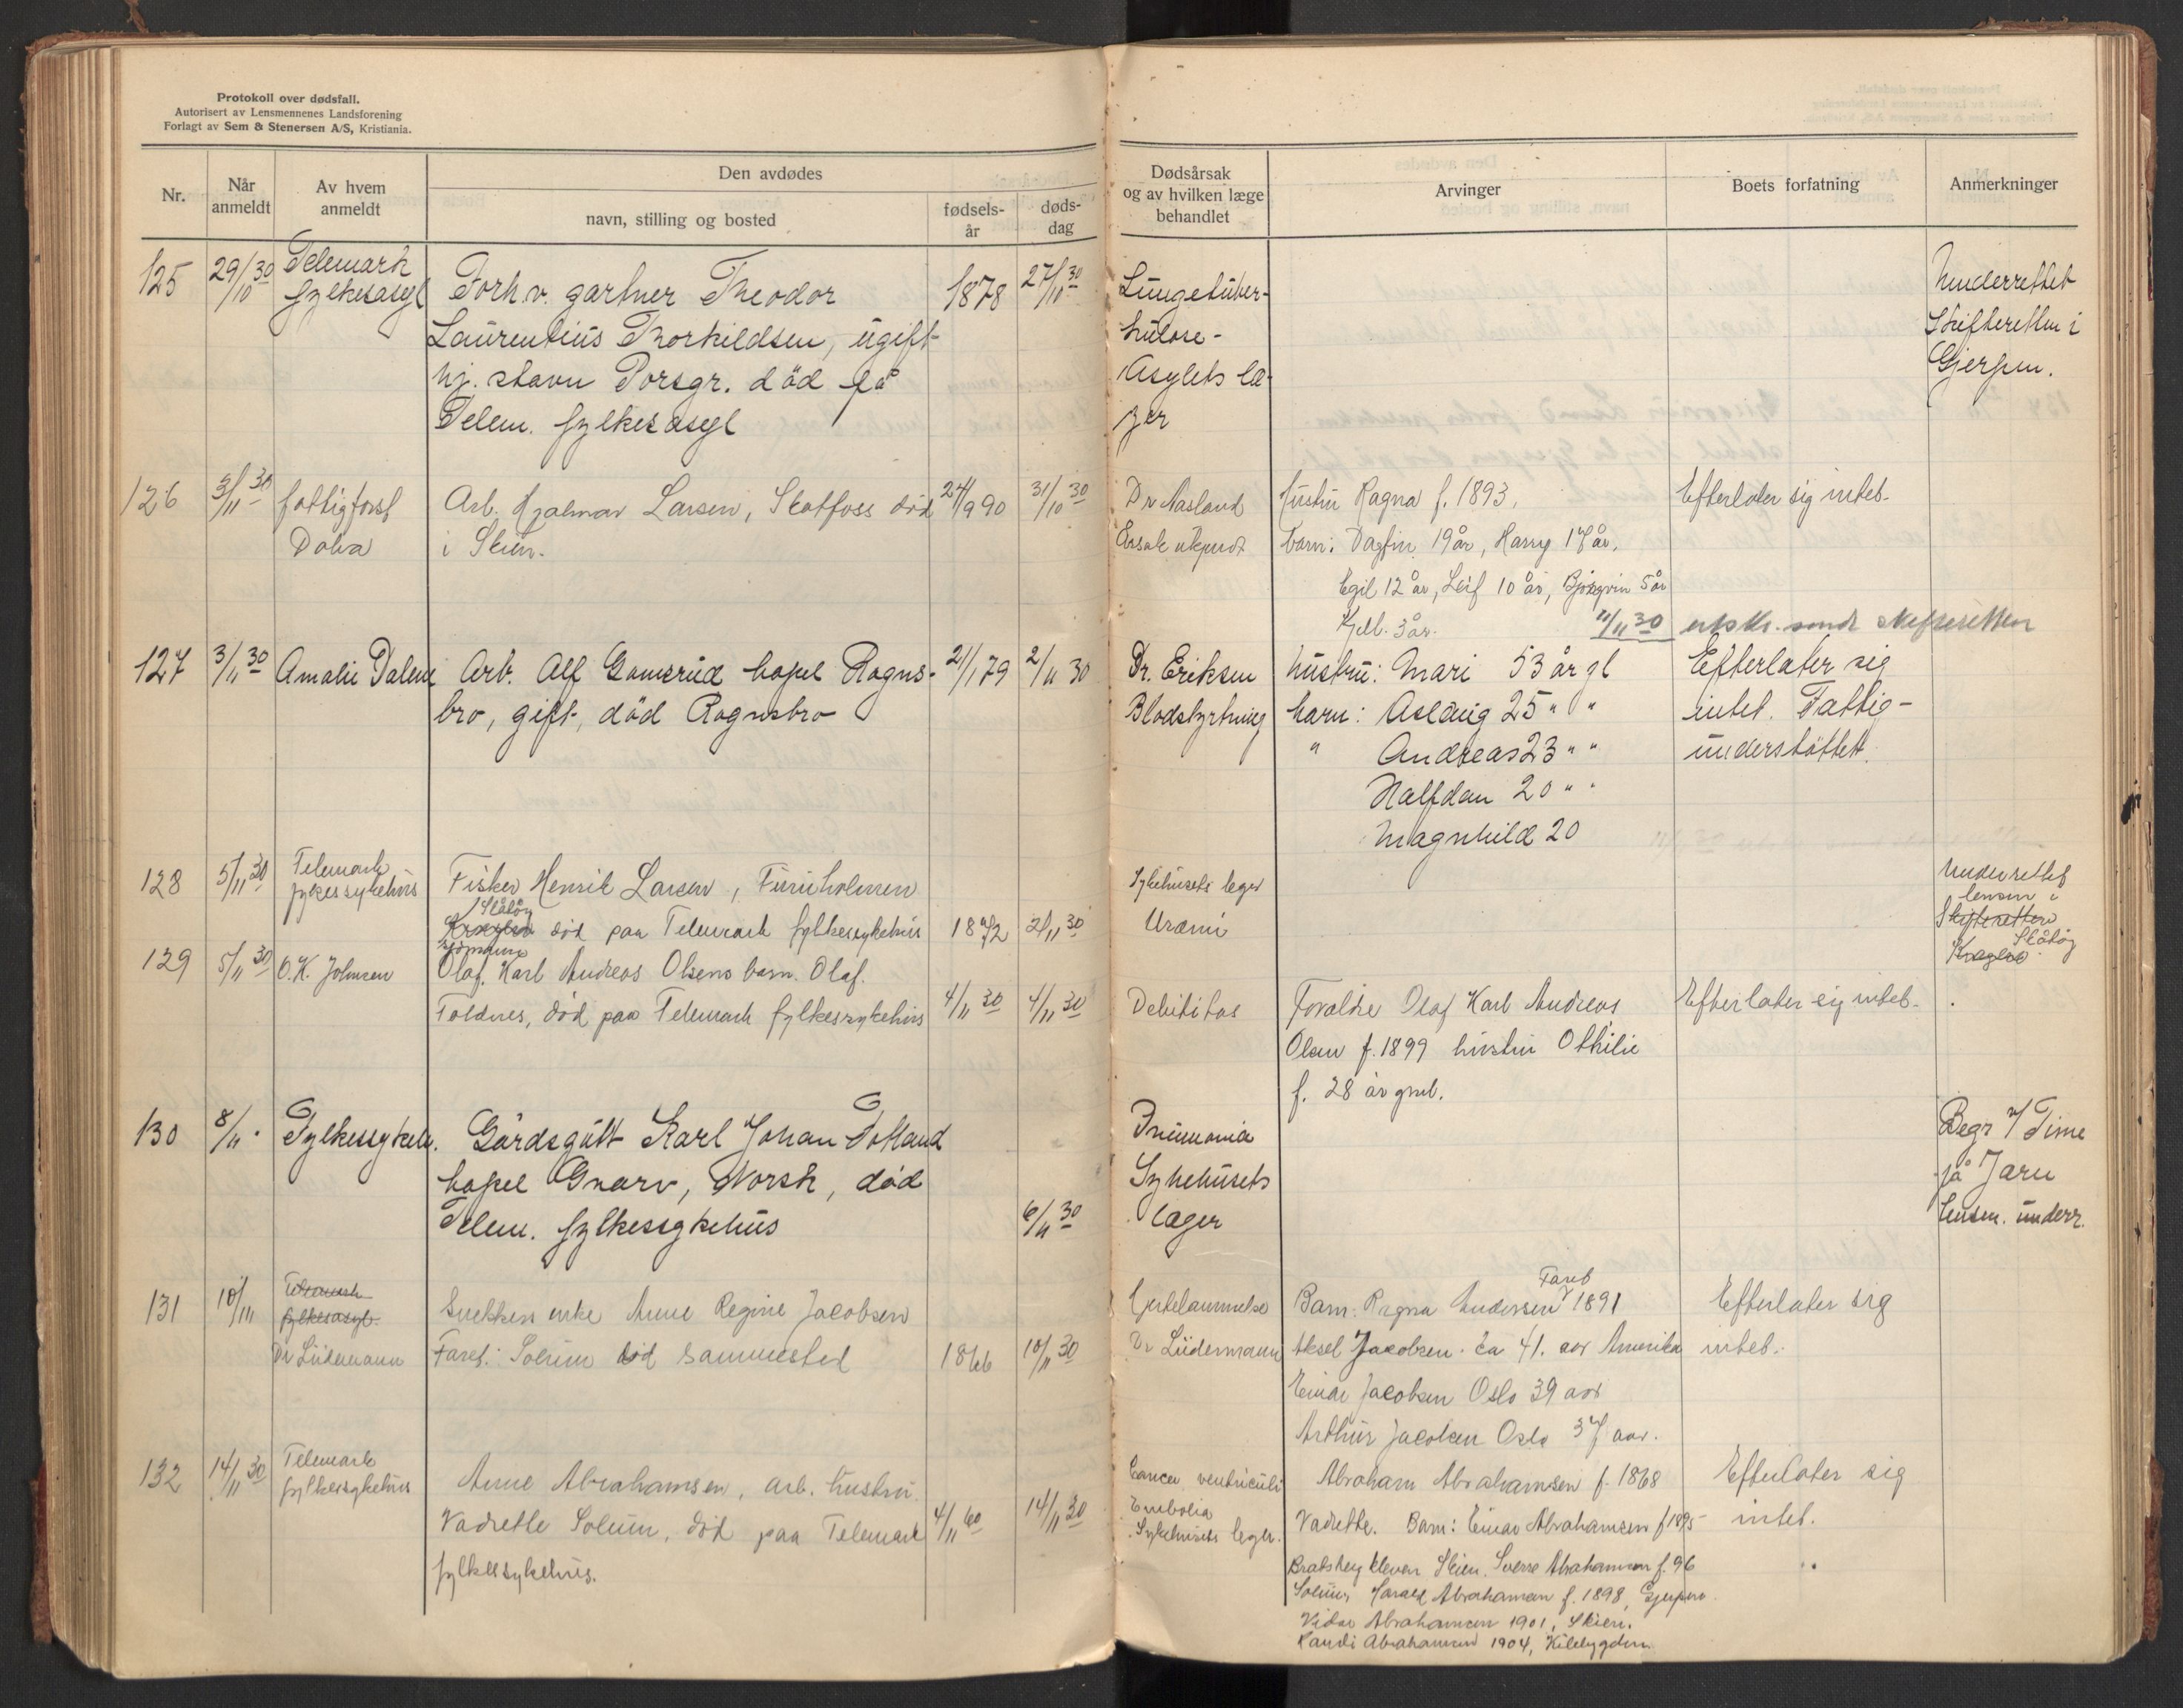 Protokoll over dødsfall.
Autorisert av Lensmennenes Landsforening
Forlagt av Sem & Stenersen A/S, Kristiania.
Nr.
Når anmeldt
Av hvem anmeldt
Den avdødes
navn, stilling og bosted
fødsels-år
døds-dag
Dødsårsak og av hvilken læge behandlet
Arvinger
Boets forfatning
Anmerkninger
125 29/10 30 Telemark fylkesasyl
Forh.v. gartner Theodor
Laurentius Thorkildsen, ugift
hj. stavn Porsgr. död på
Telem. fylkesasyl
1878 27/10 30
Lungetuber-
kulose -
Asylets læ-
ger
Underrettet
Skifteretten i
Gjerpen.
126 3/11 30 fattigforst Dolva
Arb. Hjalmar Larsen, Skotfoss död
i Skien.
24/9 90 31/10 30
Dr Aasland
Hustru Ragna f. 1893.
barn: Dagfin 19 år, Harry 17 år,
Egil 12 år, Leif 10 år, Bjørgvin 5 år
Kjell. 3 år.
Efterlater sig intet.
11/11 30 sendt skifteretten
127 3/11 30 Amalie Dalene
Arb. Alf Gamsrud bopel Rogns-
bro, gift, död Rognsbro
21/1 79 2/11 30
Dr. Eriksen
Blodstyrtning
hustru: Mari 53 år gl
barn: Aslaug 25 " "
" Andreas 23 " "
Halfdan 20 " "
Magnhild 20
Efterlater sig
intet. Fattig-
understöttet.
128 5/11 30 Telemark fylkessykehus
Fisker Henrik Larsen, Furuholmen
Skåtöy
Kragerø död paa Telemark fylkessykehus
1872 2/11 30
Sykehusets leger
Uræmi
Underrettet
lensm. i
Skifteretten
Skåtöy
Kragerø
129 5/11 30 O.K. Johnsen
Sjömann
Olaf Karl Andreas Olsens barn Olaf.
Toldnes, död paa Telemark fylkessykehus
4/11 30 4/11 30
Debilitas
Foreldre Olaf Karl Andreas
Olsen f. 1899 hustru Othilie
f. 28 år gml.
Efterlater sig intet.
130 8/11 " Fylkessykeh.
Gårdsgutt Karl Johan Totland
bopel Gvarv, Norsk, död
Telem. fylkessykehus
6/11 30
Pneumonia
Sykehusets
læger
Begr i Time
på Jæren
Lensm. underr.
131 10/11 Telemark fylkesasyl.
Dr Lüdemann
Snekker enke Anne Regine Jacobsen
Farel: Solum död sammested
1866 10/11 30
Hjertelammelse
Dr Lüdemann
Farel
Barn: Ragna Andersen 1891
Aksel Jacobsen ca 41. aar Amerika
Einar Jacobsen Oslo 39 aar
Arthur Jacobsen Oslo 37 aar.
Efterlater sig
intet.
132 14/11 30 Telemark fylkessykehus
Anne Abrahamsen, arb. hustru
Vadrette Solum, död paa Telemark
fylkessykehus.
4/11 60 14/11 30
Cancer ventriculi
Embolia
Sykehusets leger.
Abraham Abrahamsen f. 1868
Vadrette. Barn: Einar Abrahamsen f 1895
Bratsbergkleven Skien. Sverre Abrahamsen f. 96
Solum, Harald Abrahamsen f. 1898, Gjerpen
Vidar Abrahamsen 1901, Skien.
Randi Abrahamsen 1904, Kilebygden.
Efterlater sig
intet.